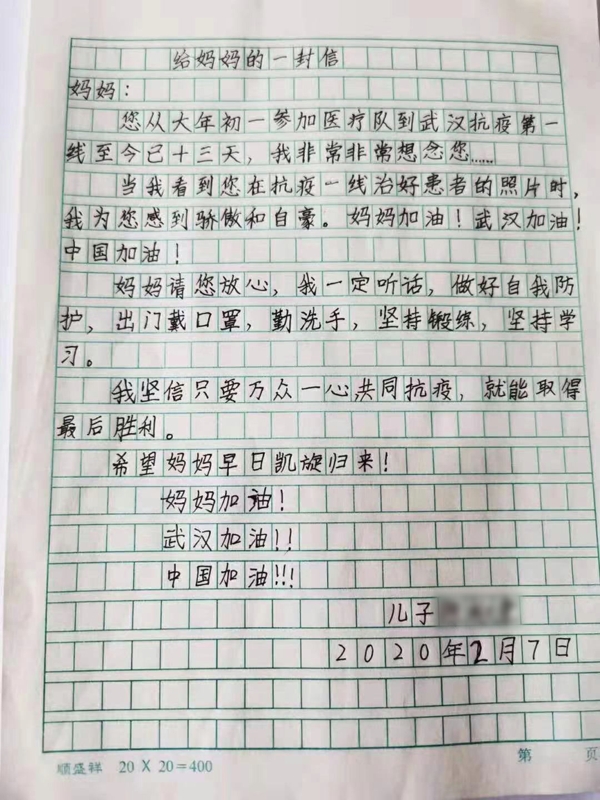 给妈妈的一封信
妈妈：
您从大年初一参加医疗队到武汉抗疫第一
线至今已十三天，我非常非常想念您……
当我看到您在抗疫一线治好患者的照片时，
我为您感到骄傲和自豪。妈妈加油！武汉加油！
中国加油！
妈妈请您放心，我一定听话，做好自我防
护，出门戴口罩，勤洗手，坚持锻练，坚持学
习。
我坚信只要万众一心共同抗疫，就能取得
最后胜利。
希望妈妈早日凯旋归来！
妈妈加油！
武汉加油！！
中国加油！！！
儿子
2020年2月7日
顺盛祥 20×20=400 第 页